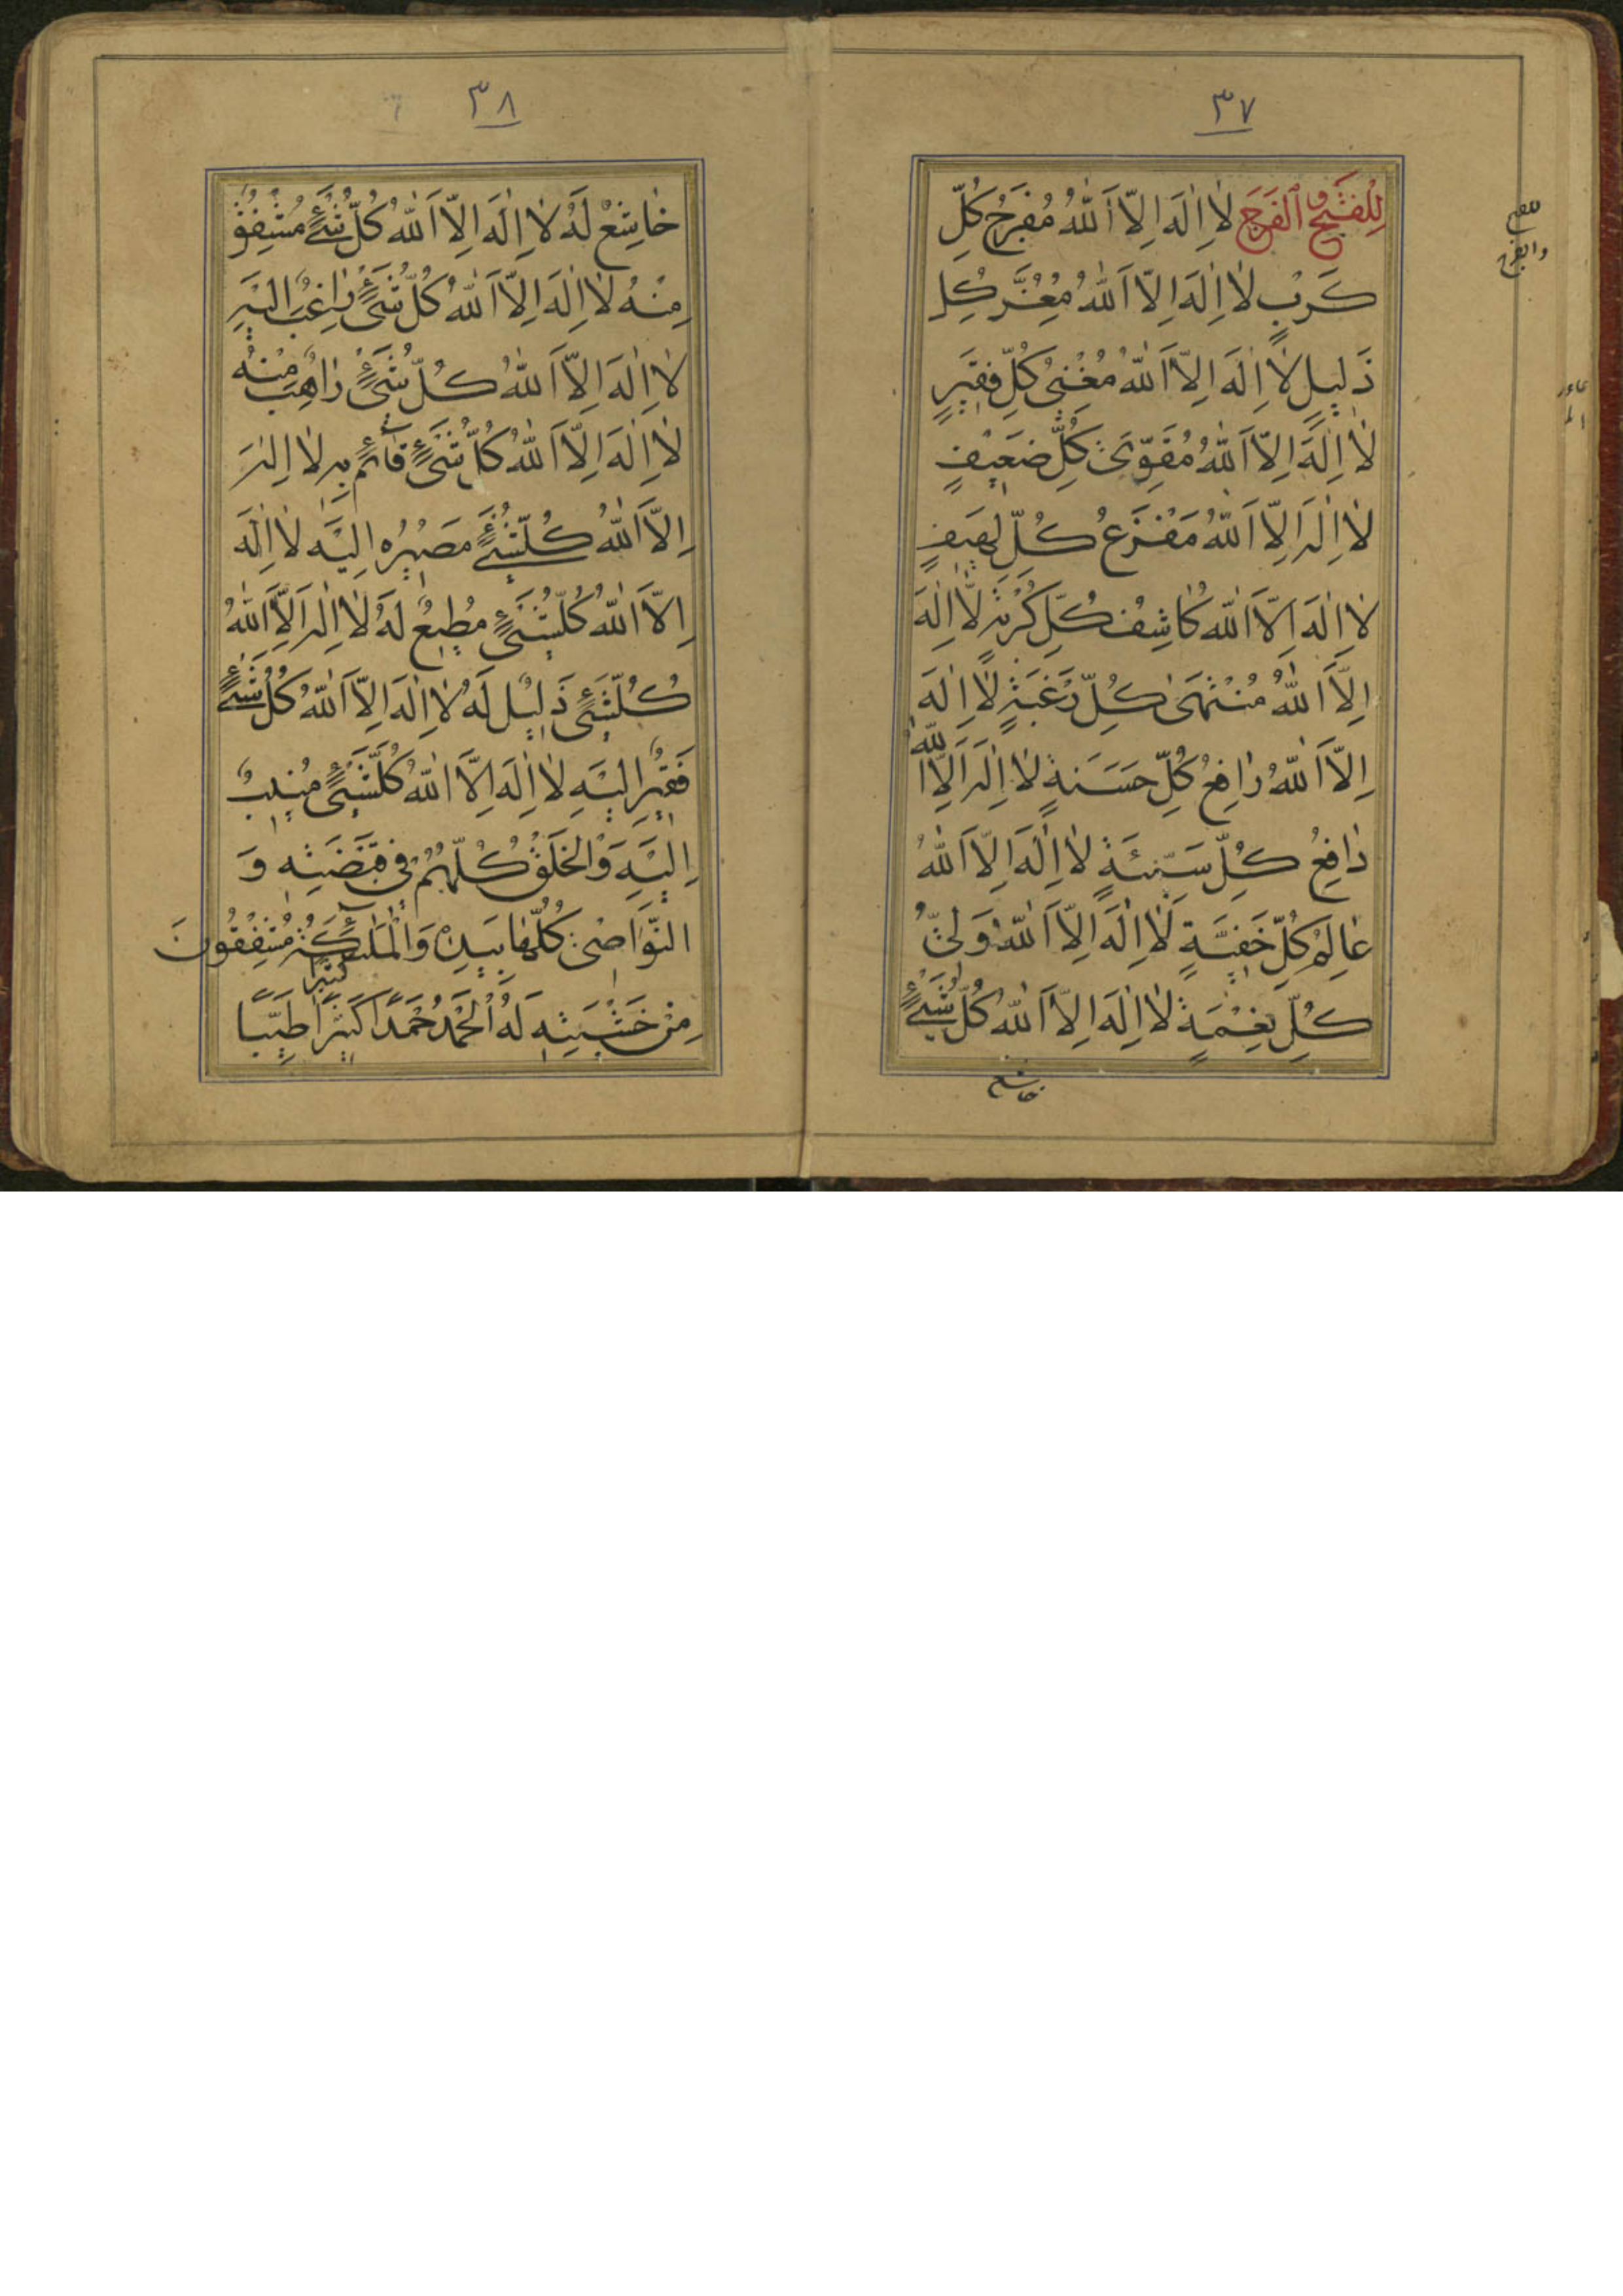 ٣٧
لِلْفَتْحِ وَالْفَرَجِ لٰا اِلٰهَ اِلّاَ اللهُ مُفَرِّجُ كُلِّ
للفتح
والفرج
كَرْبٍ لٰا اِلٰهَ اِلّاَ اللهُ مُعِزُّ كُلِّ
ذَلِيلٍ لٰا اِلٰهَ اِلّاَ اللهُ مُغْنِي كُلِّ فَقِيرٍ
لٰا اِلٰهَ اِلّاَ اللهُ مُقَوِّي كُلِّ ضَعِيفٍ
لٰا اِلٰهَ اِلّاَ اللهُ مَفْزَعُ كُلِّ لَهِيفٍ
لٰا اِلٰهَ اِلّاَ اللهُ كٰاشِفُ كُلِّ كُرْبَةٍ لٰا اِلٰهَ
اِلّاَ اللهُ مُنْتَهىٰ كُلِّ رَغْبَةٍ لٰا اِلٰهَ
اِلّاَ اللهُ رٰافِعُ كُلِّ حَسَنَةٍ لٰا اِلٰهَ اِلّاَ الله
دٰافِعُ كُلِّ سَيِّئَةٍ لٰا اِلٰهَ اِلّاَ اللهُ
عٰالِمُ كُلِّ خَفِيَّةٍ لٰا اِلٰهَ اِلّاَ اللهُ وَلِيُّ
كُلِّ نِعْمَةٍ لٰا اِلٰهَ اِلّاَ اللهُ كُلُّ شَيْءٍ
خاشع
٣٨
خٰاشِعٌ لَهُ لٰا اِلٰهَ اِلّاَ اللهُ كُلُّ شَيْءٍ مُشْفِقٌ
مِنْهُ لٰا اِلٰهَ اِلّاَ اللهُ كُلُّ شَيْءٍ رٰاغِبٌ اِلَيْهِ
لٰا اِلٰهَ اِلّاَ اللهُ كُلُّ شَيْءٍ رٰاهِبٌ مِنْهُ
لٰا اِلٰهَ اِلّاَ اللهُ كُلُّ شَيْءٍ قٰائِمٌ بِهِ لٰا اِلٰهَ
اِلّاَ اللهُ كُلُّ شَيْءٍ مَصِيرُهُ اِلَيْهِ لٰا اِلٰهَ
اِلّاَ اللهُ كُلُّ شَيْءٍ مُطِيعٌ لَهُ لٰا اِلٰهَ اِلّاَ اللهُ
كُلُّ شَيْءٍ ذَلِيلٌ لَهُ لٰا اِلٰهَ اِلّاَ اللهُ كُلُّ شَيْءٍ
فَقِيرٌ اِلَيْهِ لٰا اِلٰهَ اِلّاَ اللهُ كُلُّ شَيْءٍ مُنِيبٌ
اِلَيْهِ وَالْخَلْقُ كُلُّهُمْ فِي قَبْضَتِهِ وَ
النَّوٰاصِي كُلُّهٰا بِيَدِهِ وَالْمَلٰئِكَةُ مُشْفِقُونَ
مِنْ خَشْيَتِهِ لَهُ الْحَمْدُ حَمْداً كَثِيراً طَيِّباً